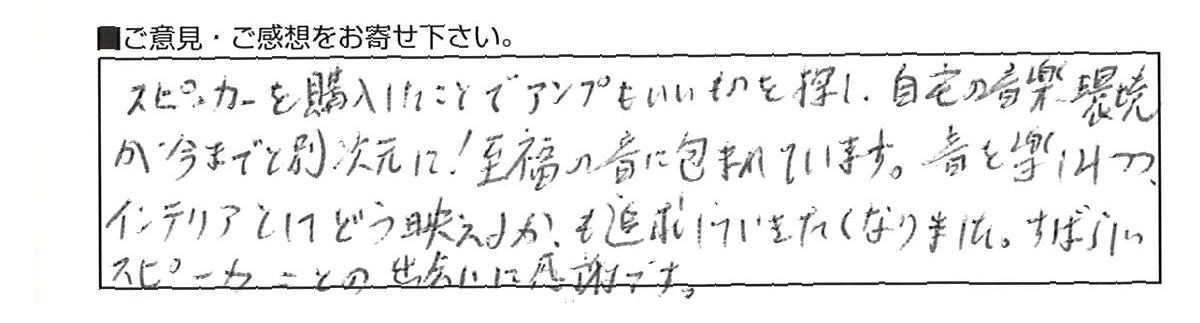 ■ご意見・ご感想をお寄せ下さい。
スピーカーを購入したことでアンプもいいものを探し、自宅の音楽環境
が今までと別次元に！至福の音に包まれています。音を楽しみつつ、
インテリアとしてどう映えるか、も追求していきたくなりました。すばらしい
スピーカーとの出会いに感謝です。